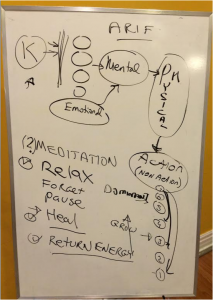 ARIF
K
A
Mental
Emotional
PHYSICAL
Action
(Non Action)
(?) MEDITATION
Relax
Forget
Pause
Heal
RETURN ENERGY
Dormant
GROW
7
6
5
4
3
2
1